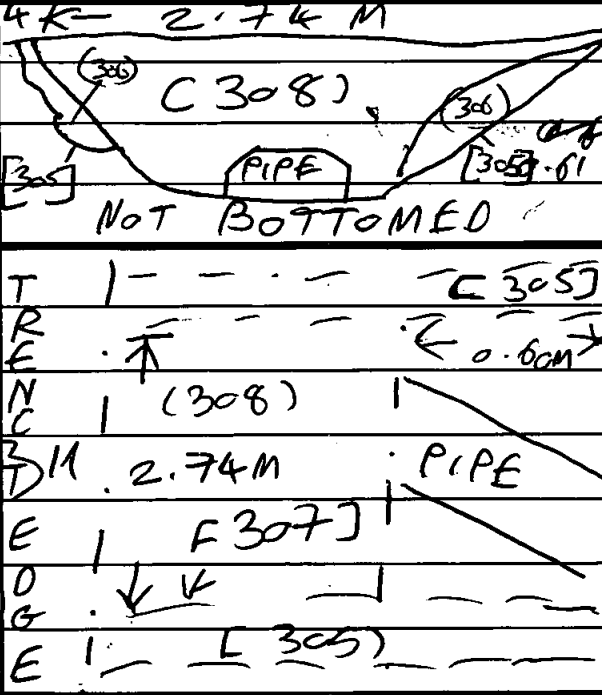 2.74 M
(306)
(308)
(306)
[305]
PIPE
[305]
.61
NOT BOTTOMED
TRENCH EDGE
[305]
0.60M
(308)
2.74M
PIPE
[307]
[305)